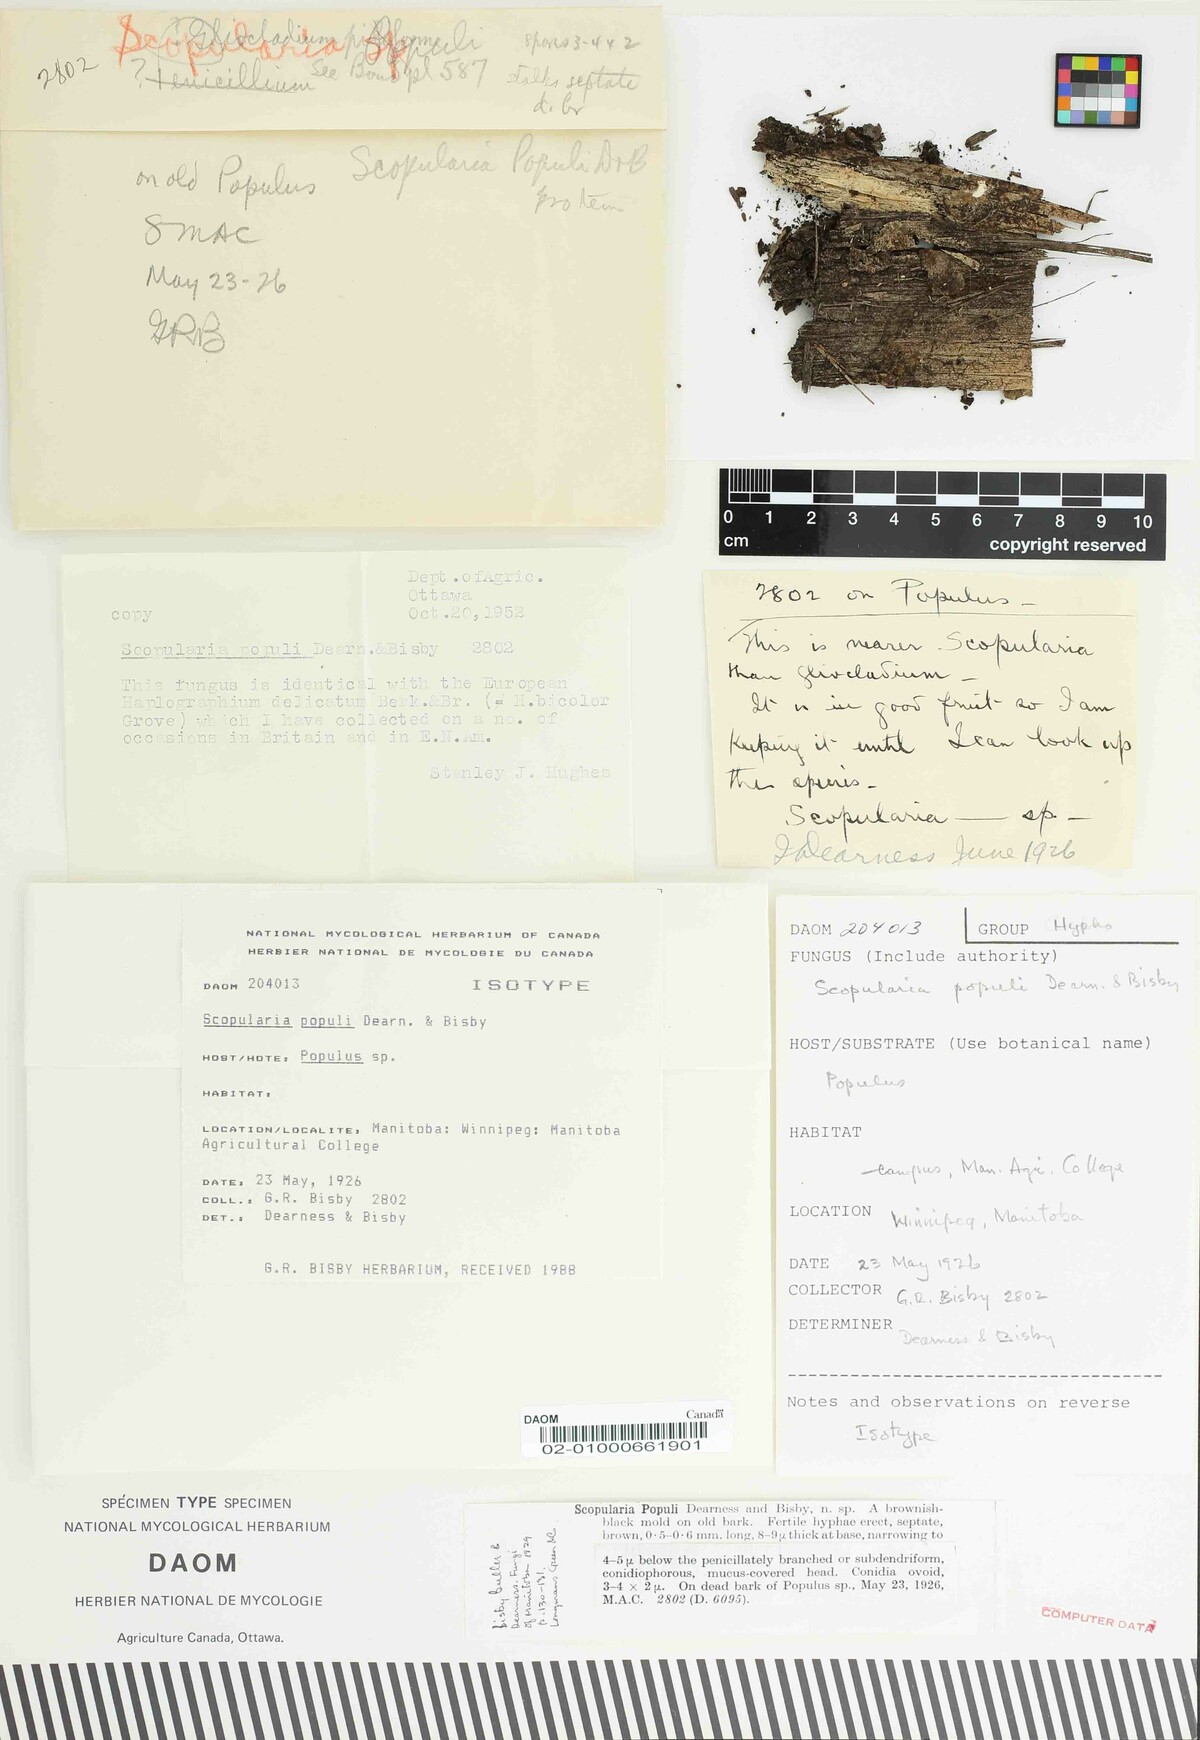 Scopularia Sp
? Gliocladium
Populi
spores 3-4 x 2
2802
? Penicillium
See
pl 587
stalks septate
on old Populus
Scopularia Populi D & B
pro tem
8 MAC
May 23-26
GRB
0 1 2 3 4 5 6 7 8 9 10
cm
copyright reserved
Dept.ofAgric.
Ottawa
copy
Oct.20,1952
Scopularia populi Dearn.&Bisby 2802
This fungus is identical with the European
Haplographium delicatum Berk.&Br. (= H.bicolor
Grove) which I have collected on a no. of
occasions in Britain and in E.N.Am.
Stanley J. Hughes
2802 on Populus —
This is nearer Scopularia
than Gliocladium —
It is in good fruit so I am
keeping it until I can look up
the species —
Scopularia — sp —
J Dearness June 1926
NATIONAL MYCOLOGICAL HERBARIUM OF CANADA
HERBIER NATIONAL DE MYCOLOGIE DU CANADA
DAOM 204013 ISOTYPE
Scopularia populi Dearn. & Bisby
HOST/HOTE: Populus sp.
HABITAT:
LOCATION/LOCALITE: Manitoba: Winnipeg: Manitoba
Agricultural College
DATE: 23 May, 1926
COLL.: G.R. Bisby 2802
DET.: Dearness & Bisby
G.R. BISBY HERBARIUM, RECEIVED 1988
DAOM Canada
02-01000661901
DAOM 204013 GROUP Hypho
FUNGUS (Include authority)
Scopularia populi Dearn. & Bisby
HOST/SUBSTRATE (Use botanical name)
Populus
HABITAT
campus, Man. Agri. College
LOCATION Winnipeg, Manitoba
DATE 23 May 1926
COLLECTOR G.R. Bisby 2802
DETERMINER Dearness & Bisby
Notes and observations on reverse
Isotype
SPÉCIMEN TYPE SPECIMEN
NATIONAL MYCOLOGICAL HERBARIUM
DAOM
HERBIER NATIONAL DE MYCOLOGIE
Agriculture Canada, Ottawa.
Bisby Buller &
Dearness. Fungi
of Manitoba 1929
p. 130-131.
Longmans Green &
Scopularia Populi Dearness and Bisby, n. sp. A brownish-
black mold on old bark. Fertile hyphae erect, septate,
brown, 0·5–0·6 mm. long, 8–9µ thick at base, narrowing to
4–5 µ below the penicillately branched or subdendriform,
conidiophorous, mucus-covered head. Conidia ovoid,
3–4 × 2 µ. On dead bark of Populus sp., May 23, 1926,
M.A.C. 2802 (D. 6095).
COMPUTER DATA